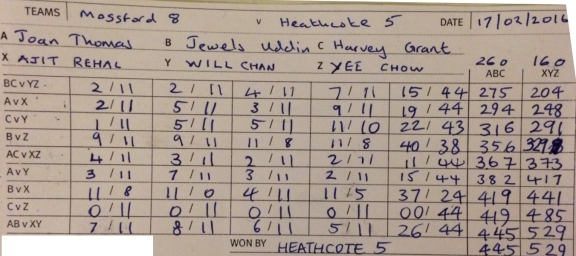 TEAMS Mossford 8 v Heathcote 5 DATE 17/02/2016
A Joan Thomas B Jewels Uddin C Harvey Grant
X AJIT REHAL Y WILL CHAN Z YEE CHOW 260 160
ABC XYZ
BC v YZ 2/11 2/11 4/11 7/11 15/44 275 204
A v X 2/11 5/11 3/11 9/11 19/44 294 248
C v Y 1/11 5/11 5/11 11/10 22/43 316 291
B v Z 9/11 9/11 11/8 11/8 40/38 356
AC v XZ 4/11 3/11 2/11 2/11 11/44 367 373
A v Y 3/11 7/11 3/11 2/11 15/44 382 417
B v X 11/8 11/0 4/11 11/5 37/24 419 441
C v Z 0/11 0/11 0/11 0/11 00/44 419 485
AB v XY 7/11 8/11 6/11 5/11 26/44 445 529
WON BY HEATHCOTE 5 445 529